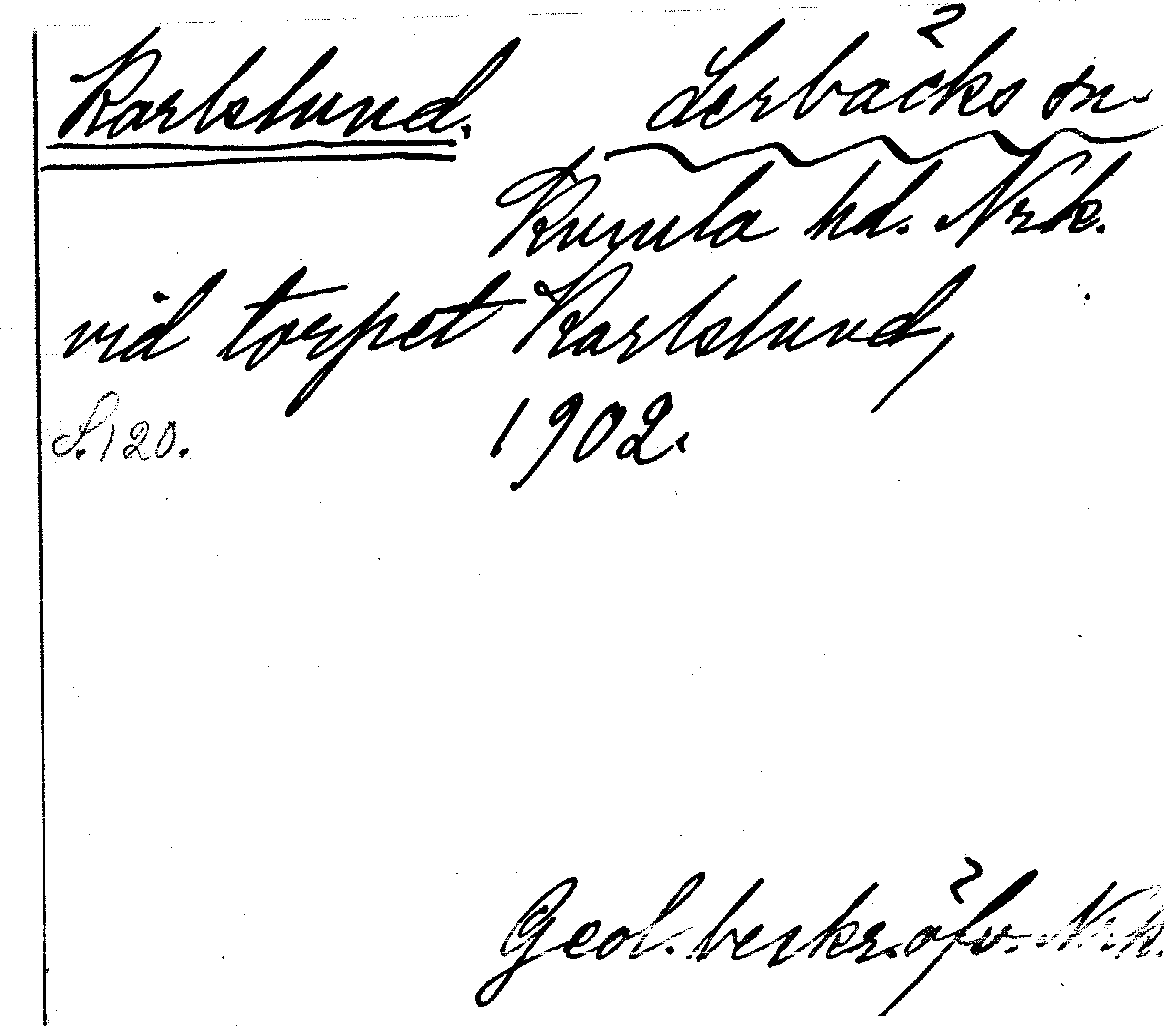 Karlslund. Lerbäcks sn
Kumla hd. Nrk.
vid torpet Karlslund,
S. 120. 1902.
Geol. beskr. öfv. Nrk.